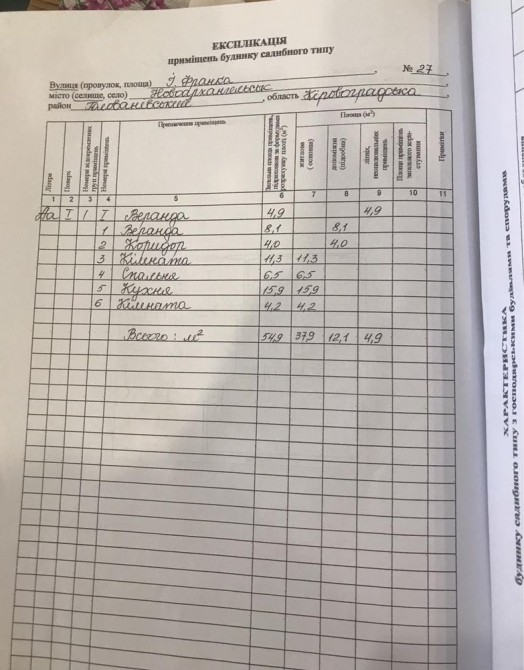 ЕКСПЛІКАЦІЯ
приміщень будинку садибного типу
Вулиця (провулок, площа) І. Франка, № 27
місто (селище, село) Новоархангельськ, область Кіровоградська
район Голованівський
Площа (м²)
Літера
Поверх
Номери відокремлених груп приміщень
Номери приміщень
Призначення приміщень
Загальна площа приміщень, підрахована за формулами розрахунку площ (м²)
житлова (основна)
допоміжна (підсобна)
літніх, неопалювальних приміщень
Площа приміщень загального користування
Примітки
1 2 3 4 5 6 7 8 9 10 11
На І І І Веранда 4,9 4,9
1 Веранда 8,1 8,1
2 Коридор 4,0 4,0
3 Кімната 11,3 11,3
4 Спальня 6,5 6,5
5 Кухня 15,9 15,9
6 Кімната 4,2 4,2
Всього: м² 54,9 37,9 12,1 4,9
ХАРАКТЕРИСТИКА
будинку садибного типу з господарськими будівлями та спорудами